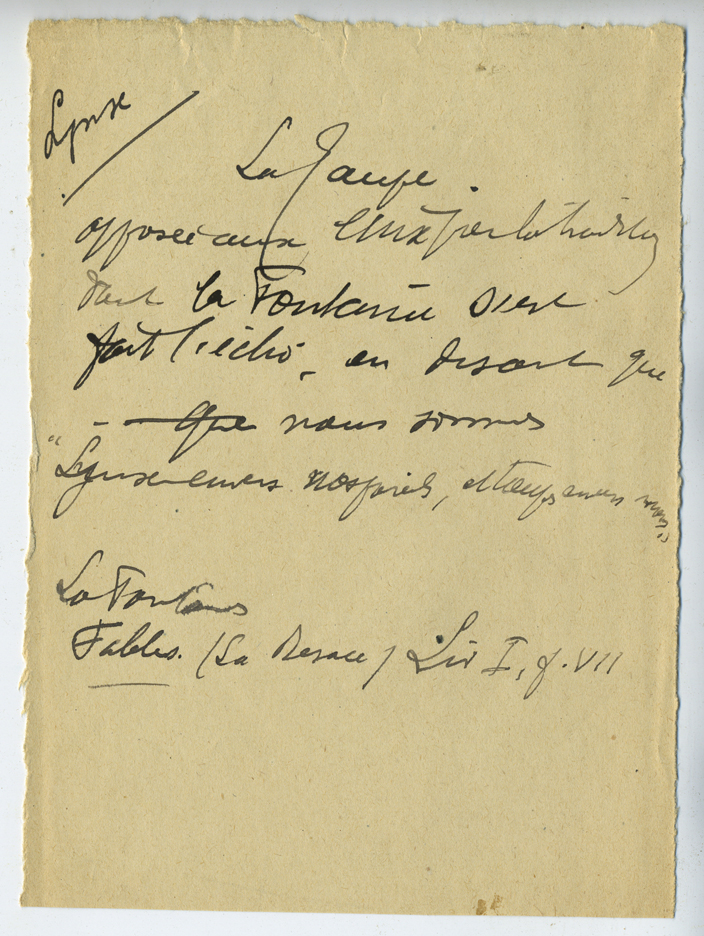 Lynx
La Taupe.
opposée aux lynx par la tradition
dont la Fontaine s'est
fait l'écho, en disant que
- Que nous sommes
"Lynx envers nos pareils, et taupes envers nous."
La Fontaine
Fables. (La Besace) Liv I, f. VII